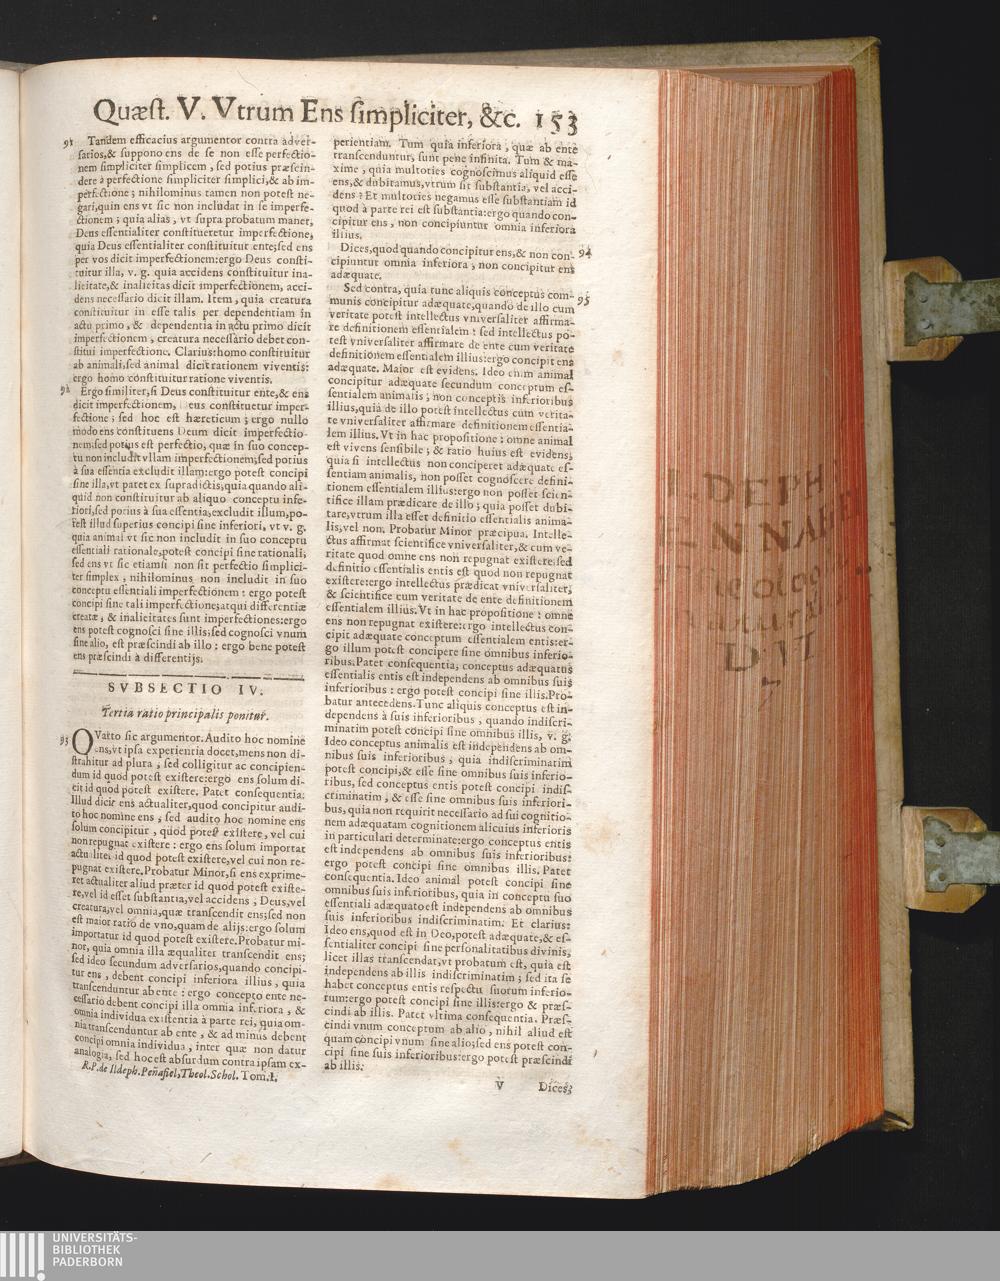 Quæst. V. Vtrum Ens simpliciter, &c. 153
91 Tandem efficacius argumentor contra adver-
sarios,& suppono ens de se non esse perfectio-
nem simpliciter simplicem, sed potius præscin-
dere à perfectione simpliciter simplici,& ab im-
perfectione; nihilominus tamen non potest ne-
gari,quin ens vt sic non includat in se imperfe-
ctionem; quia alias, vt supra probatum manet,
Deus essentialiter constitueretur imperfectione,
quia Deus essentialiter constituitur ente;sed ens
per vos dicit imperfectionem:ergo Deus consti-
tuitur illa, v. g. quia accidens constituitur ina-
licitate,& inalicitas dicit imperfectionem, acci-
dens necessario dicit illam. Item, quia creatura
constituitur in esse talis per dependentiam in
actu primo, & dependentia in actu primo dicit
imperfectionem, creatura necessario debet con-
stitui imperfectione. Clarius:homo constituitur
ab animali,sed animal dicit rationem viventis:
ergo homo constituitur ratione viventis.
92 Ergo similiter,si Deus constituitur ente,& ens
dicit imperfectionem, Deus constituetur imper-
fectione; sed hoc est hæreticum; ergo nullo
modo ens constituens Deum dicit imperfectio-
nem;sed potius est perfectio, quæ in suo concep-
tu non includit vllam imperfectionem;sed potius
à sua essentia excludit illam:ergo potest concipi
sine illa,vt patet ex supradictis;quia quando ali-
quid non constituitur ab aliquo conceptu infe-
riori,sed potius à sua essentia,excludit illum,po-
test illud superius concipi sine inferiori, vt v. g.
quia animal vt sic non includit in suo conceptu
essentiali rationale,potest concipi sine rationali;
sed ens vt sic etiamsi non sit perfectio simplici-
ter simplex, nihilominus non includit in suo
conceptu essentiali imperfectionem: ergo potest
concipi sine tali imperfectione;atqui differentiæ
creatæ, & inalicitates sunt imperfectiones:ergo
ens potest cognosci sine illis;sed cognosci vnum
sine alio, est præscindi ab illo: ergo bene potest
ens præscindi à differentijs.
SVBSECTIO IV.
Tertia ratio principalis ponitur.
93 QVarto sic argumentor. Audito hoc nomine
ens,vt ipsa experientia docet,mens non di-
strahitur ad plura, sed colligitur ac concipien-
dum id quod potest existere:ergo ens solum di-
cit id quod potest existere. Patet consequentia:
Illud dicit ens actualiter,quod concipitur audi-
to hoc nomine ens; sed audito hoc nomine ens
solum concipitur, quod potest existere, vel cui
non repugnat existere: ergo ens solum importat
actualiter id quod potest existere,vel cui non re-
pugnat existere.Probatur Minor,si ens exprime-
ret actualiter aliud præter id quod potest existe-
re,vel id esset substantia,vel accidens, Deus,vel
creatura,vel omnia,quæ transcendit ens;sed non
est maior ratio de vno,quam de alijs:ergo solum
importatur id quod potest existere.Probatur mi-
nor, quia omnia illa æqualiter transcendit ens;
sed ideo secundum adversarios,quando concipi-
tur ens, debent concipi inferiora illius, quia
transcenduntur ab ente: ergo concepto ente ne-
cessario debent concipi illa omnia inferiora, &
omnia individua existentia à parte rei, quia om-
nia transcenduntur ab ente, & ad minus debent
concipi omnia individua, inter quæ non datur
analogia, sed hoc est absurdum contra ipsam ex-
R.P.de Ildeph.Peñafiel,Theol.Schol. Tom.I.
perientiam. Tum quia inferiora, quæ ab ente
transcenduntur, sunt pene infinita. Tum & ma-
xime, quia multoties cognoscimus aliquid esse
ens,& dubitamus,vtrum sit substantia, vel acci-
dens? Et multoties negamus esse substantiam id
quod à parte rei est substantia:ergo quando con-
cipitur ens, non concipiuntur omnia inferiora
illius.
Dices,quod quando concipitur ens,& non con- 94
cipiuntur omnia inferiora, non concipitur ens
adæquate.
Sed contra, quia tunc aliquis conceptus com- 95
munis concipitur adæquate,quando de illo cum
veritate potest intellectus vniversaliter affirma-
re definitionem essentialem: sed intellectus po-
test vniversaliter affirmare de ente cum veritate
definitionem essentialem illius:ergo concipit ens
adæquate. Maior est evidens. Ideo enim animal
concipitur adæquate secundum conceptum es-
sentialem animalis, non conceptis inferioribus
illius,quia de illo potest intellectus cum verita-
te vniversaliter affirmare definitionem essentia-
lem illius. Vt in hac propositione: omne animal
est vivens sensibile; & ratio huius est evidens;
quia si intellectus non conciperet adæquate es-
sentiam animalis, non posset cognoscere defini-
tionem essentialem illius:ergo non posset scien-
tifice illam prædicare de illo; quia posset dubi-
tare,vtrum illa esset definitio essentialis anima-
lis,vel non. Probatur Minor præcipua. Intelle-
ctus affirmat scientifice vniversaliter,& cum ve-
ritate quod omne ens non repugnat existere;sed
definitio essentialis entis est quod non repugnat
existere:ergo intellectus prædicat vniversaliter,
& scientifice cum veritate de ente definitionem
essentialem illius. Vt in hac propositione: omne
ens non repugnat existere:ergo intellectus con-
cipit adæquate conceptum essentialem entis:er-
go illum potest concipere sine omnibus inferio-
ribus.Patet consequentia; conceptus adæquatus
essentialis entis est independens ab omnibus suis
inferioribus: ergo potest concipi sine illis.Pro-
batur antecedens.Tunc aliquis conceptus est in-
dependens à suis inferioribus, quando indiscri-
minatim potest concipi sine omnibus illis, v. g.
Ideo conceptus animalis est independens ab om-
nibus suis inferioribus, quia indiscriminatim
potest concipi,& esse sine omnibus suis inferio-
ribus, sed conceptus entis potest concipi indis-
criminatim, & esse sine omnibus suis inferiori-
bus, quia non requirit necessario ad sui cognitio-
nem adæquatam cognitionem alicuius inferioris
in particulari determinate:ergo conceptus entis
est independens ab omnibus suis inferioribus:
ergo potest concipi sine omnibus illis. Patet
consequentia. Ideo animal potest concipi sine
omnibus suis inferioribus, quia in conceptu suo
essentiali adæquato est independens ab omnibus
suis inferioribus indiscriminatim. Et clarius:
Ideo ens,quod est in Deo,potest adæquate,& es-
sentialiter concipi sine personalitatibus divinis,
licet illas transcendat,vt probatum est, quia est
independens ab illis indiscriminatim; sed ita se
habet conceptus entis respectu suorum inferio-
rum:ergo potest concipi sine illis:ergo & præs-
cindi ab illis. Patet vltima consequentia. Præs-
cindi vnum conceptum ab alio, nihil aliud est
quam concipi vnum sine alio;sed ens potest con-
cipi sine suis inferioribus:ergo potest præscindi
ab illis.
V Dices,
UNIVERSITÄTS-
BIBLIOTHEK
PADERBORN